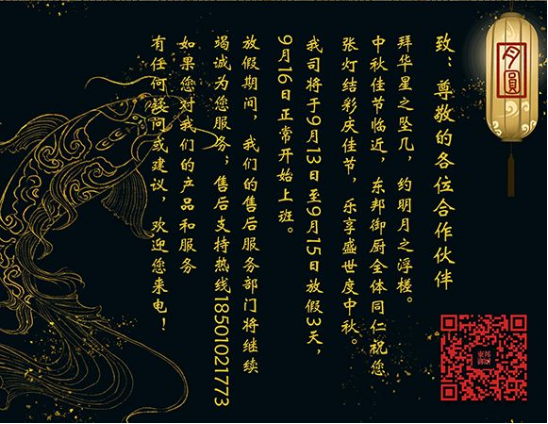 月圓
致：尊敬的各位合作伙伴
拜华星之坠几，约明月之浮槎。
中秋佳节临近，东邦御厨全体同仁祝您
张灯结彩庆佳节，乐享盛世度中秋。
我司将于9月13日至9月15日放假3天，
9月16日正常开始上班。
放假期间，我们的售后服务部门将继续
竭诚为您服务；售后支持热线18501021773
如果您对我们的产品和服务
有任何疑问或建议，欢迎您来电！
東邦
御廚